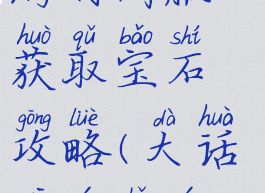 huò qǔ bǎo shí
获取宝石
gōng lüè dà huà
攻略(大话